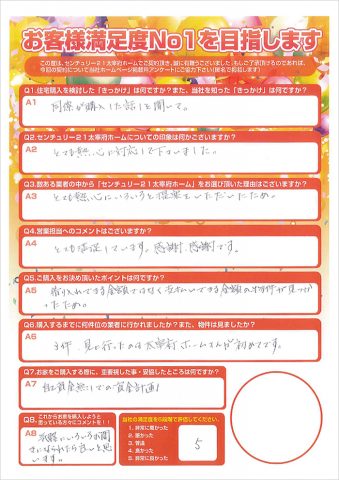 お客様満足度No1を目指します
この度は、センチュリー21太宰府ホームでご契約頂き、誠に有難うございました。もしご了承頂けるのであれば、
今回の契約について当社ホームページ掲載用アンケートにご協力下さい!(匿名で掲載します)
Q1.住宅購入を検討した「きっかけ」は何ですか?また、当社を知った「きっかけ」は何ですか?
A1
同僚が購入した話を聞いて。
Q2.センチュリー21太宰府ホームについての印象は何かございますか?
A2
とても熱心に対応して下さいました。
Q3.数ある業者の中から「センチュリー21太宰府ホーム」をお選び頂いた理由はございますか?
A3
とても熱心にいろいろと提案をいただいたため。
Q4.営業担当へのコメントはございますか?
A4
とても感謝しています。感謝!感謝です。
Q5.ご購入をお決め頂いたポイントは何ですか?
A5
借り入れできる金額ではなく支払いできる金額の物件が見つか
ったため。
Q6.購入するまでに何件位の業者に行かれましたか?また、物件は見ましたか?
A6
見に行ったのは太宰府ホームさんが初めてです。
Q7.お家をご購入する際に、重要視した事・妥協したところは何ですか?
A7
自己資金無しでの資金計画!
Q8.
これからお家を購入しようと
思っている方々にコメントを!!
A8
実際にいろいろお聞
きになられたら良いと思
います。
当社の満足度を5段階で評価してください。
1. 非常に悪かった
2. 悪かった
3. 普通
4. 良かった
5. 非常に良かった
5